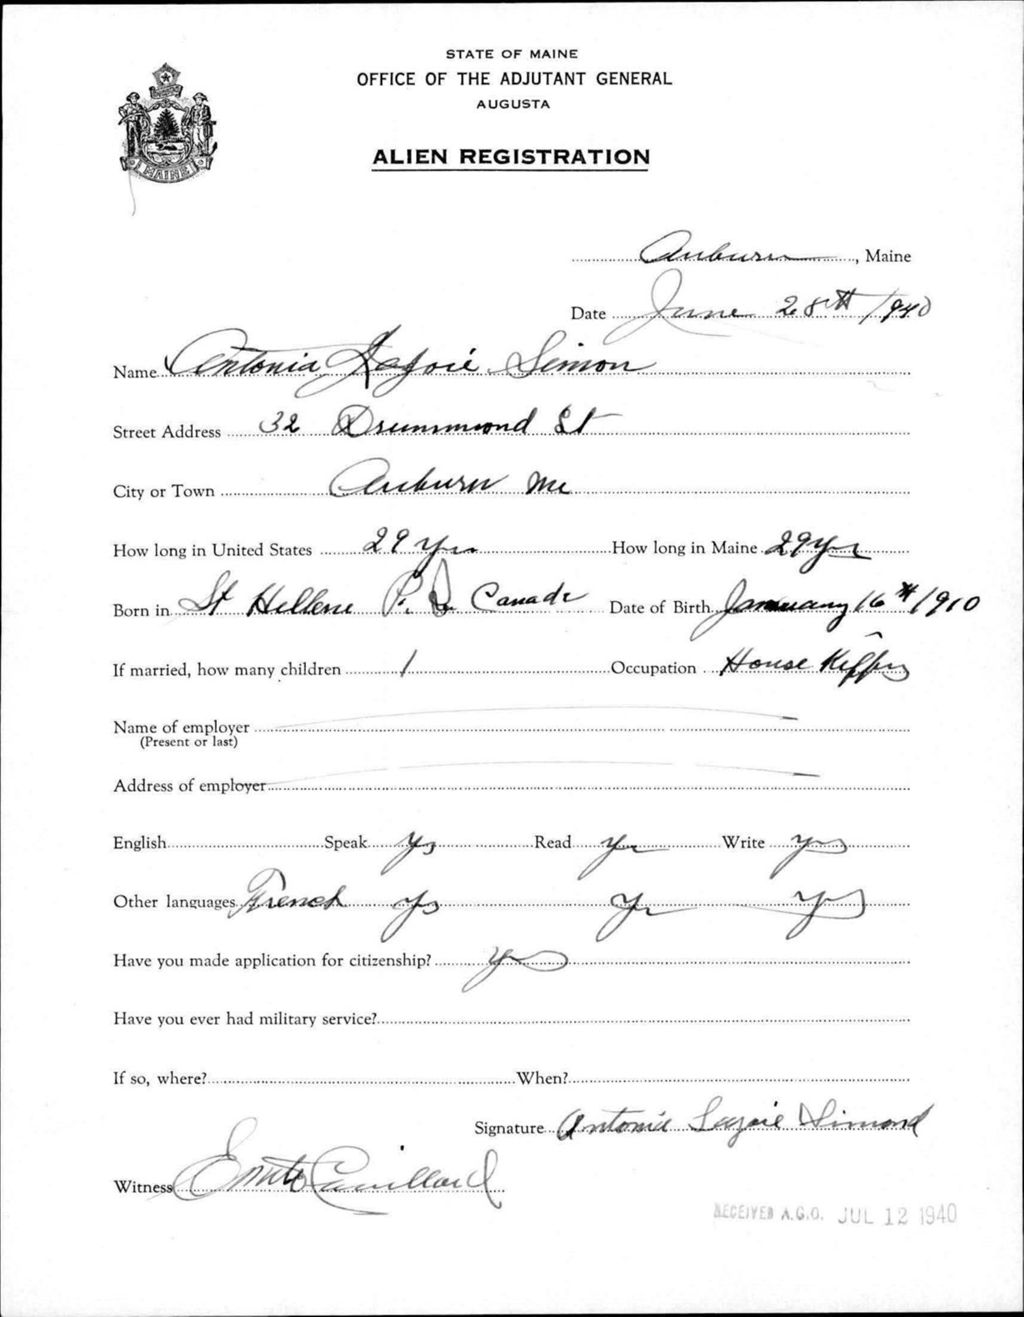 STATE OF MAINE
OFFICE OF THE ADJUTANT GENERAL
AUGUSTA
ALIEN REGISTRATION
MAINE
Auburn, Maine
Date June 28th 1940
Name Antonia Lajoie Simon
Street Address 32 Drummond St
City or Town Auburn Me
How long in United States 29 yrs How long in Maine 29 yrs
Born in St Hellene P. Q Canada Date of Birth January 16th 1910
If married, how many children 1 Occupation House
Name of employer
(Present or last)
Address of employer
English Speak yes Read yes Write yes
Other languages French yes yes yes
Have you made application for citizenship? yes
Have you ever had military service?
If so, where? When?
Signature Antonia Lajoie Simond
Witness
RECEIVED A.G.O. JUL 12 1940